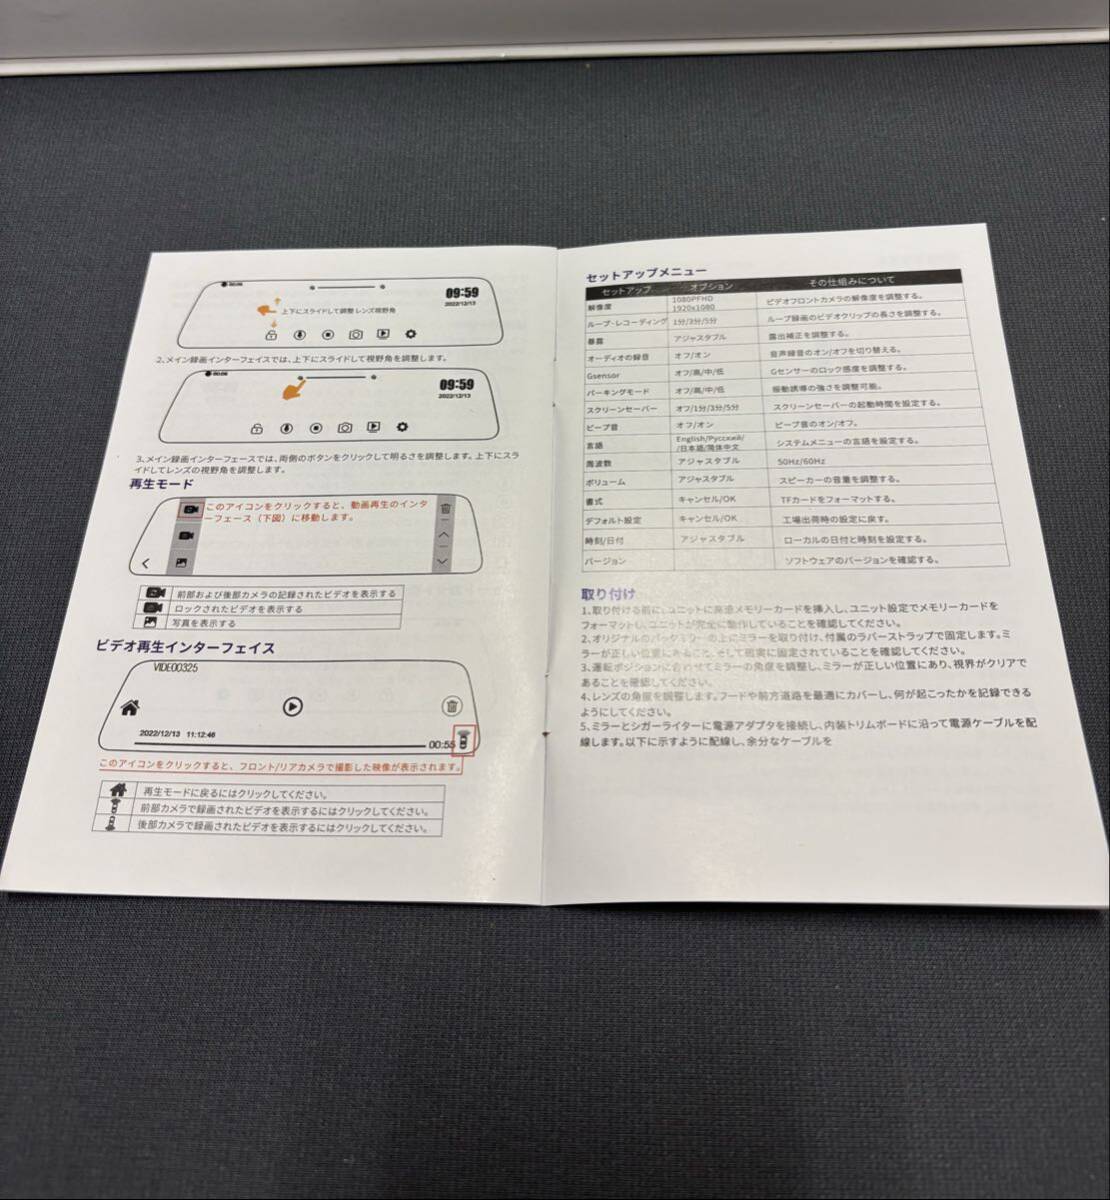 00:06
09:59
2022/12/13
上下にスライドして調整 レンズ視野角
2、メイン録画インターフェイスでは、上下にスライドして視野角を調整します。
00:06
09:59
2022/12/13
3、メイン録画インターフェースでは、両側のボタンをクリックして明るさを調整します。上下にスラ
イドしてレンズの視野角を調整します。
再生モード
このアイコンをクリックすると、動画再生のインタ
ーフェース（下図）に移動します。
前部および後部カメラの記録されたビデオを表示する
ロックされたビデオを表示する
写真を表示する
ビデオ再生インターフェイス
VIDEO0325
2022/12/13 11:12:46
00:55
このアイコンをクリックすると、フロント/リアカメラで撮影した映像が表示されます。
再生モードに戻るにはクリックしてください。
前部カメラで録画されたビデオを表示するにはクリックしてください。
後部カメラで録画されたビデオを表示するにはクリックしてください。
セットアップメニュー
セットアップ オプション その仕組みについて
解像度 1080PFHD 1920x1080 ビデオフロントカメラの解像度を調整する。
ループ・レコーディング 1分/2分/5分 ループ録画のビデオクリップの長さを調整する。
暴露 アジャスタブル 露出補正を調整する。
オーディオの録音 オフ/オン 音声録音のオン/オフを切り替える。
Gsensor オフ/高/中/低 Gセンサーのロック感度を調整する。
パーキングモード オフ/高/中/低 振動誘導の強さを調整可能。
スクリーンセーバー オフ/1分/3分/5分 スクリーンセーバーの起動時間を設定する。
ビープ音 オフ/オン ビープ音のオン/オフ。
言語 English/Русский/ /日本語/简体中文 システムメニューの言語を設定する。
周波数 アジャスタブル 50Hz/60Hz
ボリューム アジャスタブル スピーカーの音量を調整する。
書式 キャンセル/OK TFカードをフォーマットする。
デフォルト設定 キャンセル/OK 工場出荷時の設定に戻す。
時刻/日付 アジャスタブル ローカルの日付と時刻を設定する。
バージョン ソフトウェアのバージョンを確認する。
取り付け
1、取り付ける前に、ユニットに高速メモリーカードを挿入し、ユニット設定でメモリーカードを
フォーマットし、ユニットが完全に動作していることを確認してください。
2、オリジナルのバックミラーの上にミラーを取り付け、付属のラバーストラップで固定します。ミ
ラーが正しい位置にあること、そして確実に固定されていることを確認してください。
3、運転ポジションに合わせてミラーの角度を調整し、ミラーが正しい位置にあり、視界がクリアで
あることを確認してください。
4、レンズの角度を調整します。フードや前方道路を最適にカバーし、何が起こったかを記録できる
ようにしてください。
5、ミラーとシガーライターに電源アダプタを接続し、内装トリムボードに沿って電源ケーブルを配
線します。以下に示すように配線し、余分なケーブルを